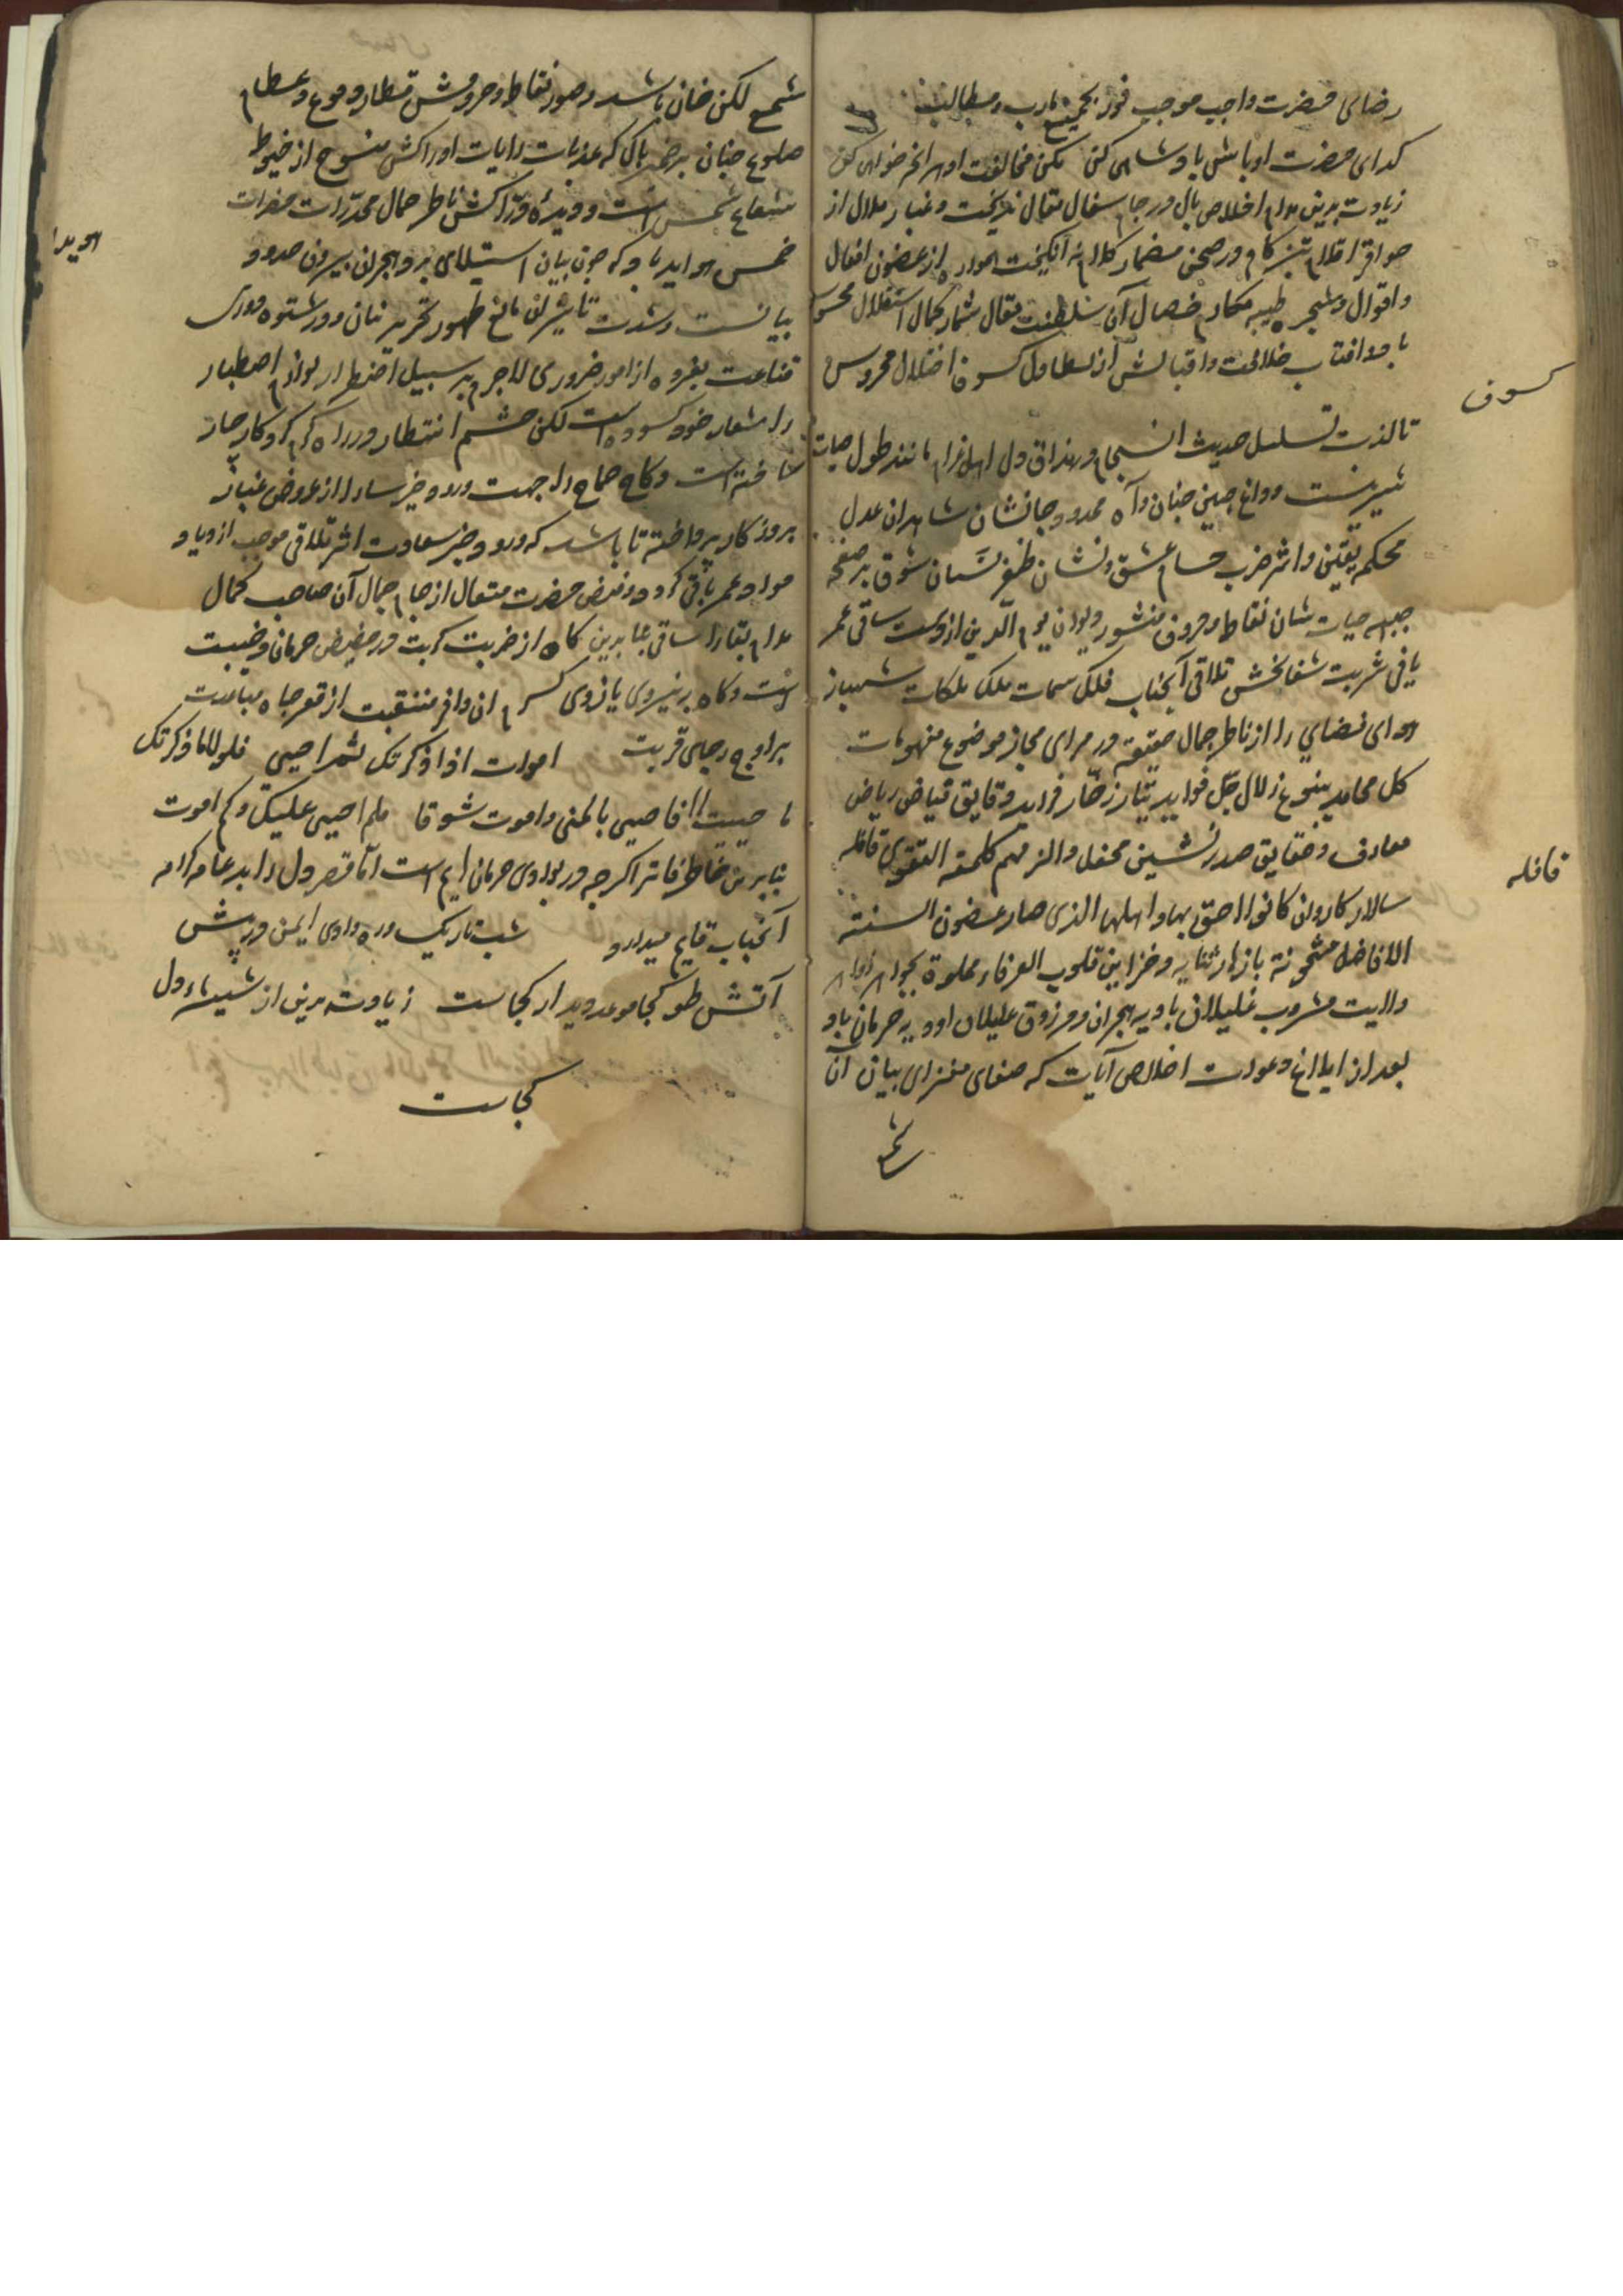 رضای حضرت واجب موجب فوز بجمیع مآرب و مطالب
کدای حضرت او باش پادشاهی کن مکن مخالفت او هر انچه خواهی کن
زیادت برین مدام اخلاص بال در جام سفال مقال نریخت و غبار ملال از
حوافر اقلام تیز کام در صحن مضمار کلام نه انکیخت همواره از غصون افعال
و اقوال و شجره طیبه مکارم خصال آن سلطنت مقال ثمار کمال استقلال
باد و افتاب خلافت و اقبالش از کسوف اختلال محروس
کسوف
تا لذت تسلسل حدیث انسجام در مذاق دل اهل غرام مانند طول حیات
شیرینست و داغ جبین جنان و آه ممدود جانشان شاهدان عدل
محکمه یقین و اثر ضرب حسام عشق و نشان ظفر نسان شوق بر صفحه
جبهه حیات شان نقاط و حروف منشور دیوان یوم الدین از دست ساقی عمر
باقی شربت شفابخش تلاقی آنجناب فلک سمات ملک ملکات شهباز
هوای فضای را از ناظر جمال حقیقة در مرای مجاز موضوع منهومات
کل محامد ینبوع زلال جل فواید تیار زخار فراید دقایق فیاض ریاض
معارف و حقایق صدرنشین محفل والزمهم کلمة التقوی قافله
قافله
سالار کاروان کانوا احق بها و اهلها الذی صار غصون السنة
الافاضل مشحونة بازهار ثنایه و خزاین قلوب العرفاء مملوة بجواهر
ولایت مشروب غلیلان بادیه هجران و مرزوق علیلان اودیه حرمان باد
بعد از ابلاغ دعوات اخلاص آیات که صفای مغزای بیان آن
شمع
شمع لکن ضان باشد و صور نقاط و حروفش قطار دموع و عظام
ضلوع جنان بر ضمیر پاک که عذبات رایات اوراکش منسوج از خیوط
شعاع شمس است و دیده دراکش ناظر جمال مخدرات حضرات
خمس هویدا باد که چون بیان استیلای بر و هجران بیرون حدود
هویدا
بیانست و شدت تاثیر ان مانع ظهور تحریر بنان و در شتوه دوری
قناعت بفروه از امور ضروری لاجرم بر سبیل اضطرار لوازم اصطبار
را شعار خود کسوده است لکن چشم انتظار در راه کرم کردکار چار
ساخته است و کاخ صماخ را جهت ورود خبر سار از عروض غبار
بروز کار پرداخته تا باشد که ورود خبر سعادت اثر تلاقی موجب ازدیاد
مواد عمر باقی کردد و فیض حضرت متعال از جام جمال آن صاحب کمال
مدام بقا را ساقی بنابرین کاه از ضربت کربت در حضیض حرمان و خیبت
است و کاه بر نیروی بازوی کسر ان وافر منقبت از قعر جاه مباعدت
بر اوج رجای قربت اموت اذا ذکرتک ثم احیی فلولا ما ذکرتک
ما حییت فاحیی بالمنی و اموت شوقا فلم احیی علیک و کم اموت
بنابرین خاطر فاتر اکرچه در بوادی حرمان است اما قصر دل را بدعا
آنجناب قایم میدارد شب تاریک و ره وادی ایمن در پیش
آتش طور کجا موعد دیدار کجاست زیادت برین از شیشهاء دل
کجاست